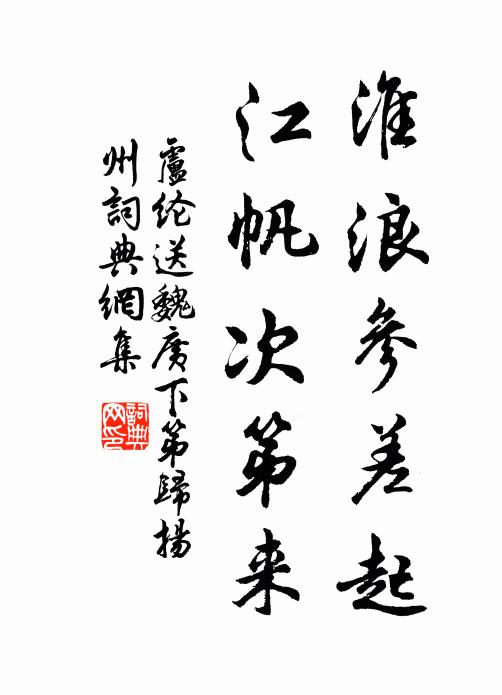 淮浪參差起
江帆次第来
盧纶送魏廣下第歸揚
州詞典網集
詞典网印